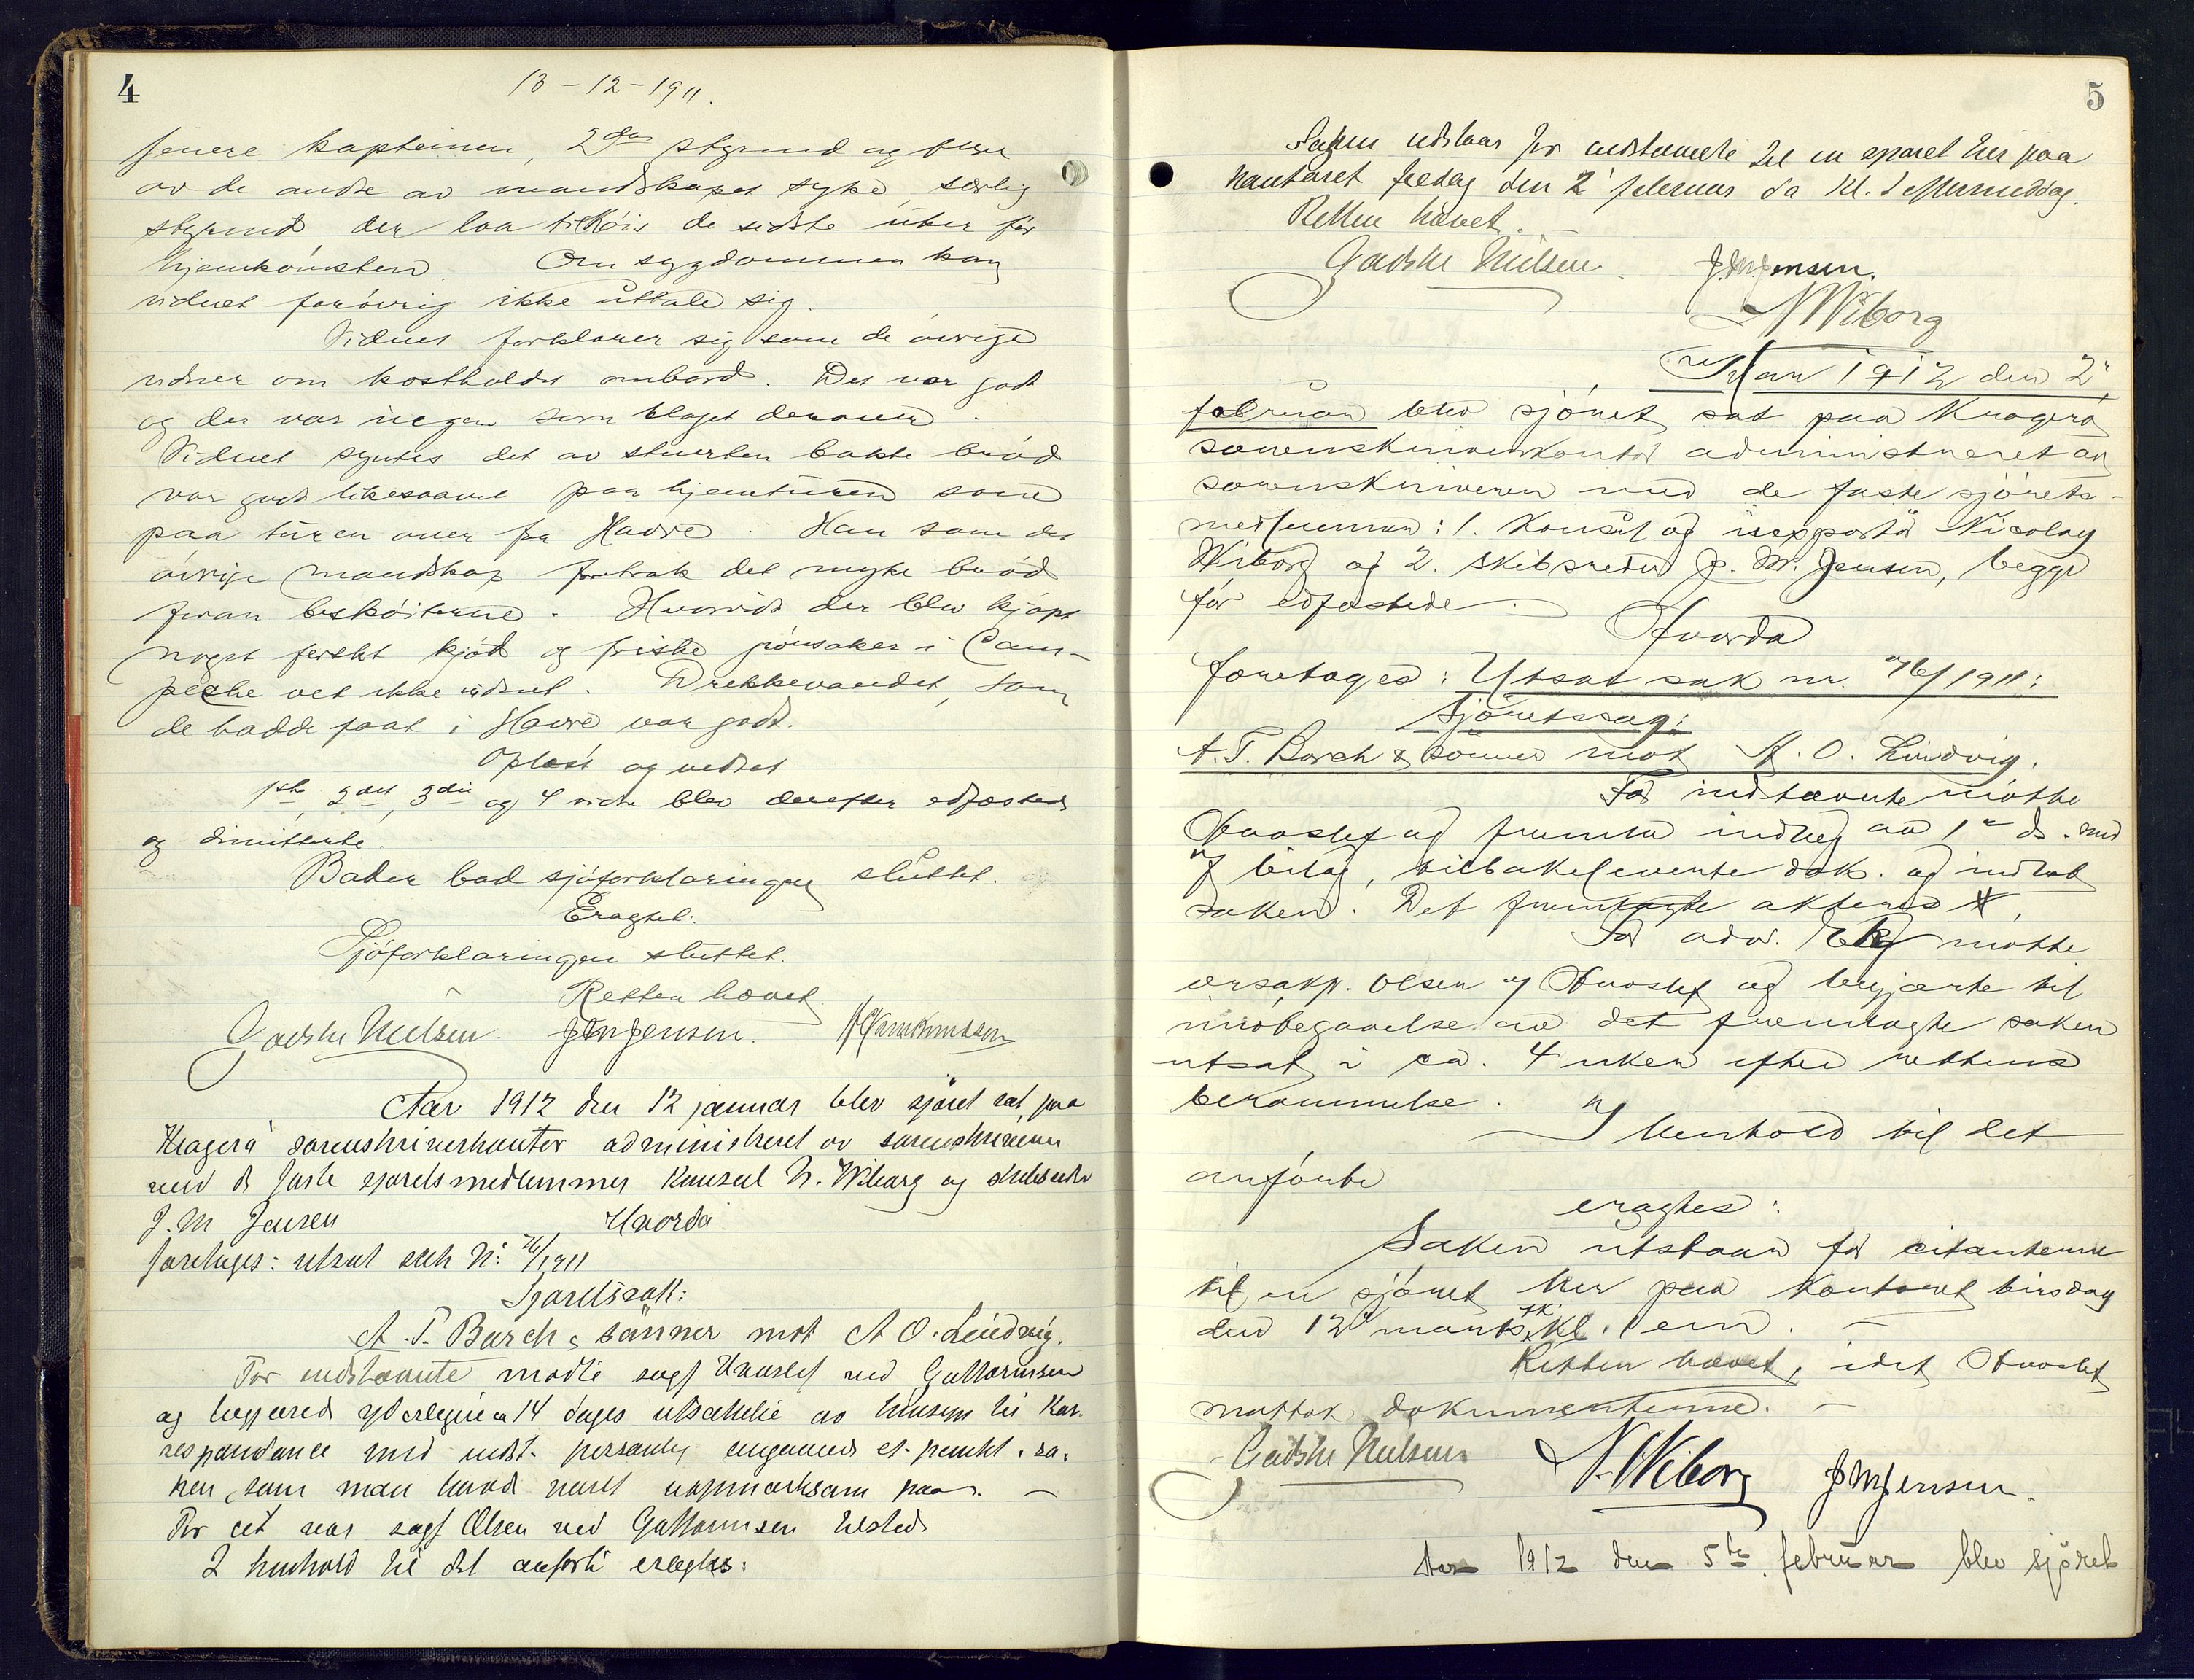 4
13-12-1911.
senere kapteinen, 2den styrmd og flere
av de andre av mandskapet syke, særlig
styrmd der laa tilkøis de sidste uker før
hjemkomsten. Om sygdommen kan
vidnet forøvrig ikke uttale sig.
Vidnet forklarer sig som de øvrige
vidner om kostholdet ombord. Det var godt
og der var ingen som klaget derover.
Vidnet syntes det av stuerten bakte brød
var godt likesaavel paa hjemturen som
paa turen over fra Havre. Han som det
øvrige mandskap foretrak det myke brød
fremfor beskøiterne. Hvorvidt der blev kjøpt
noget ferskt kjød og friske grønsaker i Cam-
peche vet ikke vidnet. Drikkevandet, som
de hadde faat i Havre var godt.
Oplæst og vedtat
1ste, 2det, 3die og 4 vidne blev derefter edfæstede
og dimitterte.
Bader bad sjøforklaringen sluttet.
Eragtet:
Sjøforklaringen sluttet.
Retten hævet
Gadske Nielsen. J M Jensen.
Aar 1912 den 12 januar blev sjøret sat paa
Kragerø sorenskriverkontor administreret av sorenskriveren
med de faste sjøretsmedlemmer Konsul N. Wiborg og skibsreder
J. M Jensen Hvorda
foretages: utsat sak No 76/1911
Sjøretssak:
A. T. Barch & sønner mot A O. Lindvig.
For indstævnte møtte sagf Knoslef ved Guttormsen
og begjærede yderligere 14 dages utsættelse av hensyn til Kor-
respondance med indst. personlig angaaende et punkt i sa-
ken, som man havde været uopmærksom paa. —
For cit var sagf Olsen ved Guttormsen tilstede
I henhold til det anførte eragtes:
5
Saken utstaar for indstævnte til en sjøret her paa
kontoret fredag den 2' februar da Kl. 1 eftermiddag.
Retten hævet. —
Gadske Nielsen. J. M. Jensen.
N Wiborg
Aar 1912 den 2'
februar blev sjøret sat paa Kragerø
sorenskriverkontor administreret av
sorenskriveren med de faste sjørets-
medlemmer: 1. Konsul og isexportør Nicolay
Wiborg og 2. skibsreder J. M. Jensen, begge
før edfæstede.
Hvorda
foretages: Utsat sak nr. 76/1911:
Sjøretssag:
A. T. Barch & sønner mot A. O. Lindvig.
For indstævnte møtte
og fremla indlæg av 1' ds. med
bilag, tilbakeleverte dok. og indlot
saken. Det fremlagte akteres
For adv. møtte
oversakf. Olsen og begjærte til
imøtegaaelse av det fremlagte saken
utsat i ca. 4 uker efter rettens
berammelse.
I henhold til det
anførte
eragtes:
Saken utstaar for citanterne
til en sjøret her paa kontoret tirsdag
den 12' marts fk. Kl. 1 em. —
Retten hævet, idet
mottok dokumenterne. —
Gadske Nielsen N. Wiborg J M Jensen.
Aar 1912 den 5te februar blev sjøret